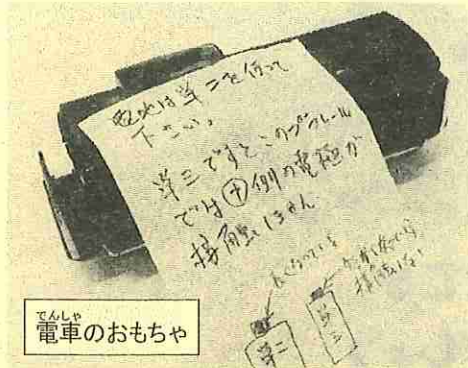 電池は単二を使って
下さい。
単三ですとこのプラレール
では⊕側の電極が
接触しません
長くなっている
単二
単三
でんしゃ
電車のおもちゃ